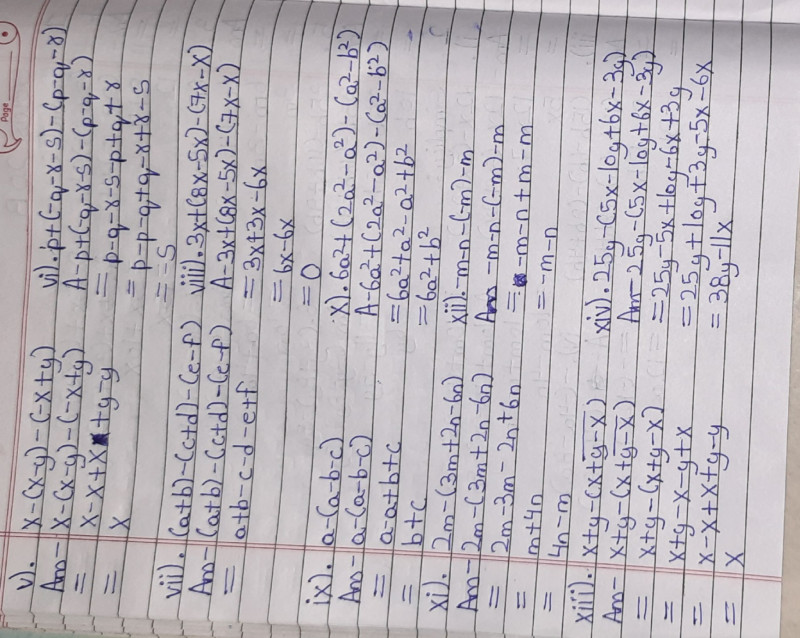 Page
v). x-(x-y)-(-x+y)
Ans- x-(x-y)-(-x+y)
= x-x+x+y-y
= x
vi). p+(-q-r-s)-(p-q-r)
A- p+(-q-r-s)-(p-q-r)
= p-q-r-s-p+q+r
= p-p-q+q-r+r-s
= -s
vii). (a+b)-(c+d)-(e-f)
Ans- (a+b)-(c+d)-(e-f)
= a+b-c-d-e+f
viii). 3x+(8x-5x)-(7x-x)
A- 3x+(8x-5x)-(7x-x)
= 3x+3x-6x
= 6x-6x
= 0
ix). a-(a-b-c)
Ans- a-(a-b-c)
= a-a+b+c
= b+c
x). 6a²+(2a²-a²)-(a²-b²)
A- 6a²+(2a²-a²)-(a²-b²)
= 6a²+a²-a²+b²
= 6a²+b²
xi). 2m-(3m+2n-6n)
Ans- 2m-(3m+2n-6n)
= 2m-3m-2n+6n
= m+4n
= 4n-m
xii). -m-n-(-m)-m
Ans -m-n-(-m)-m
= -m-n+m-m
= -m-n
xiii). x+y-(x+y̅-̅x̅)
Ans- x+y-(x+y̅-̅x̅)
= x+y-(x+y-x)
= x+y-x-y+x
= x-x+x+y-y
= x
xiv). 25y-(5x-10y+6x-3y)
Ans- 25y-(5x-10y+6x-3y)
= 25y-5x+10y-6x+3y
= 25y+10y+3y-5x-6x
= 38y-11x